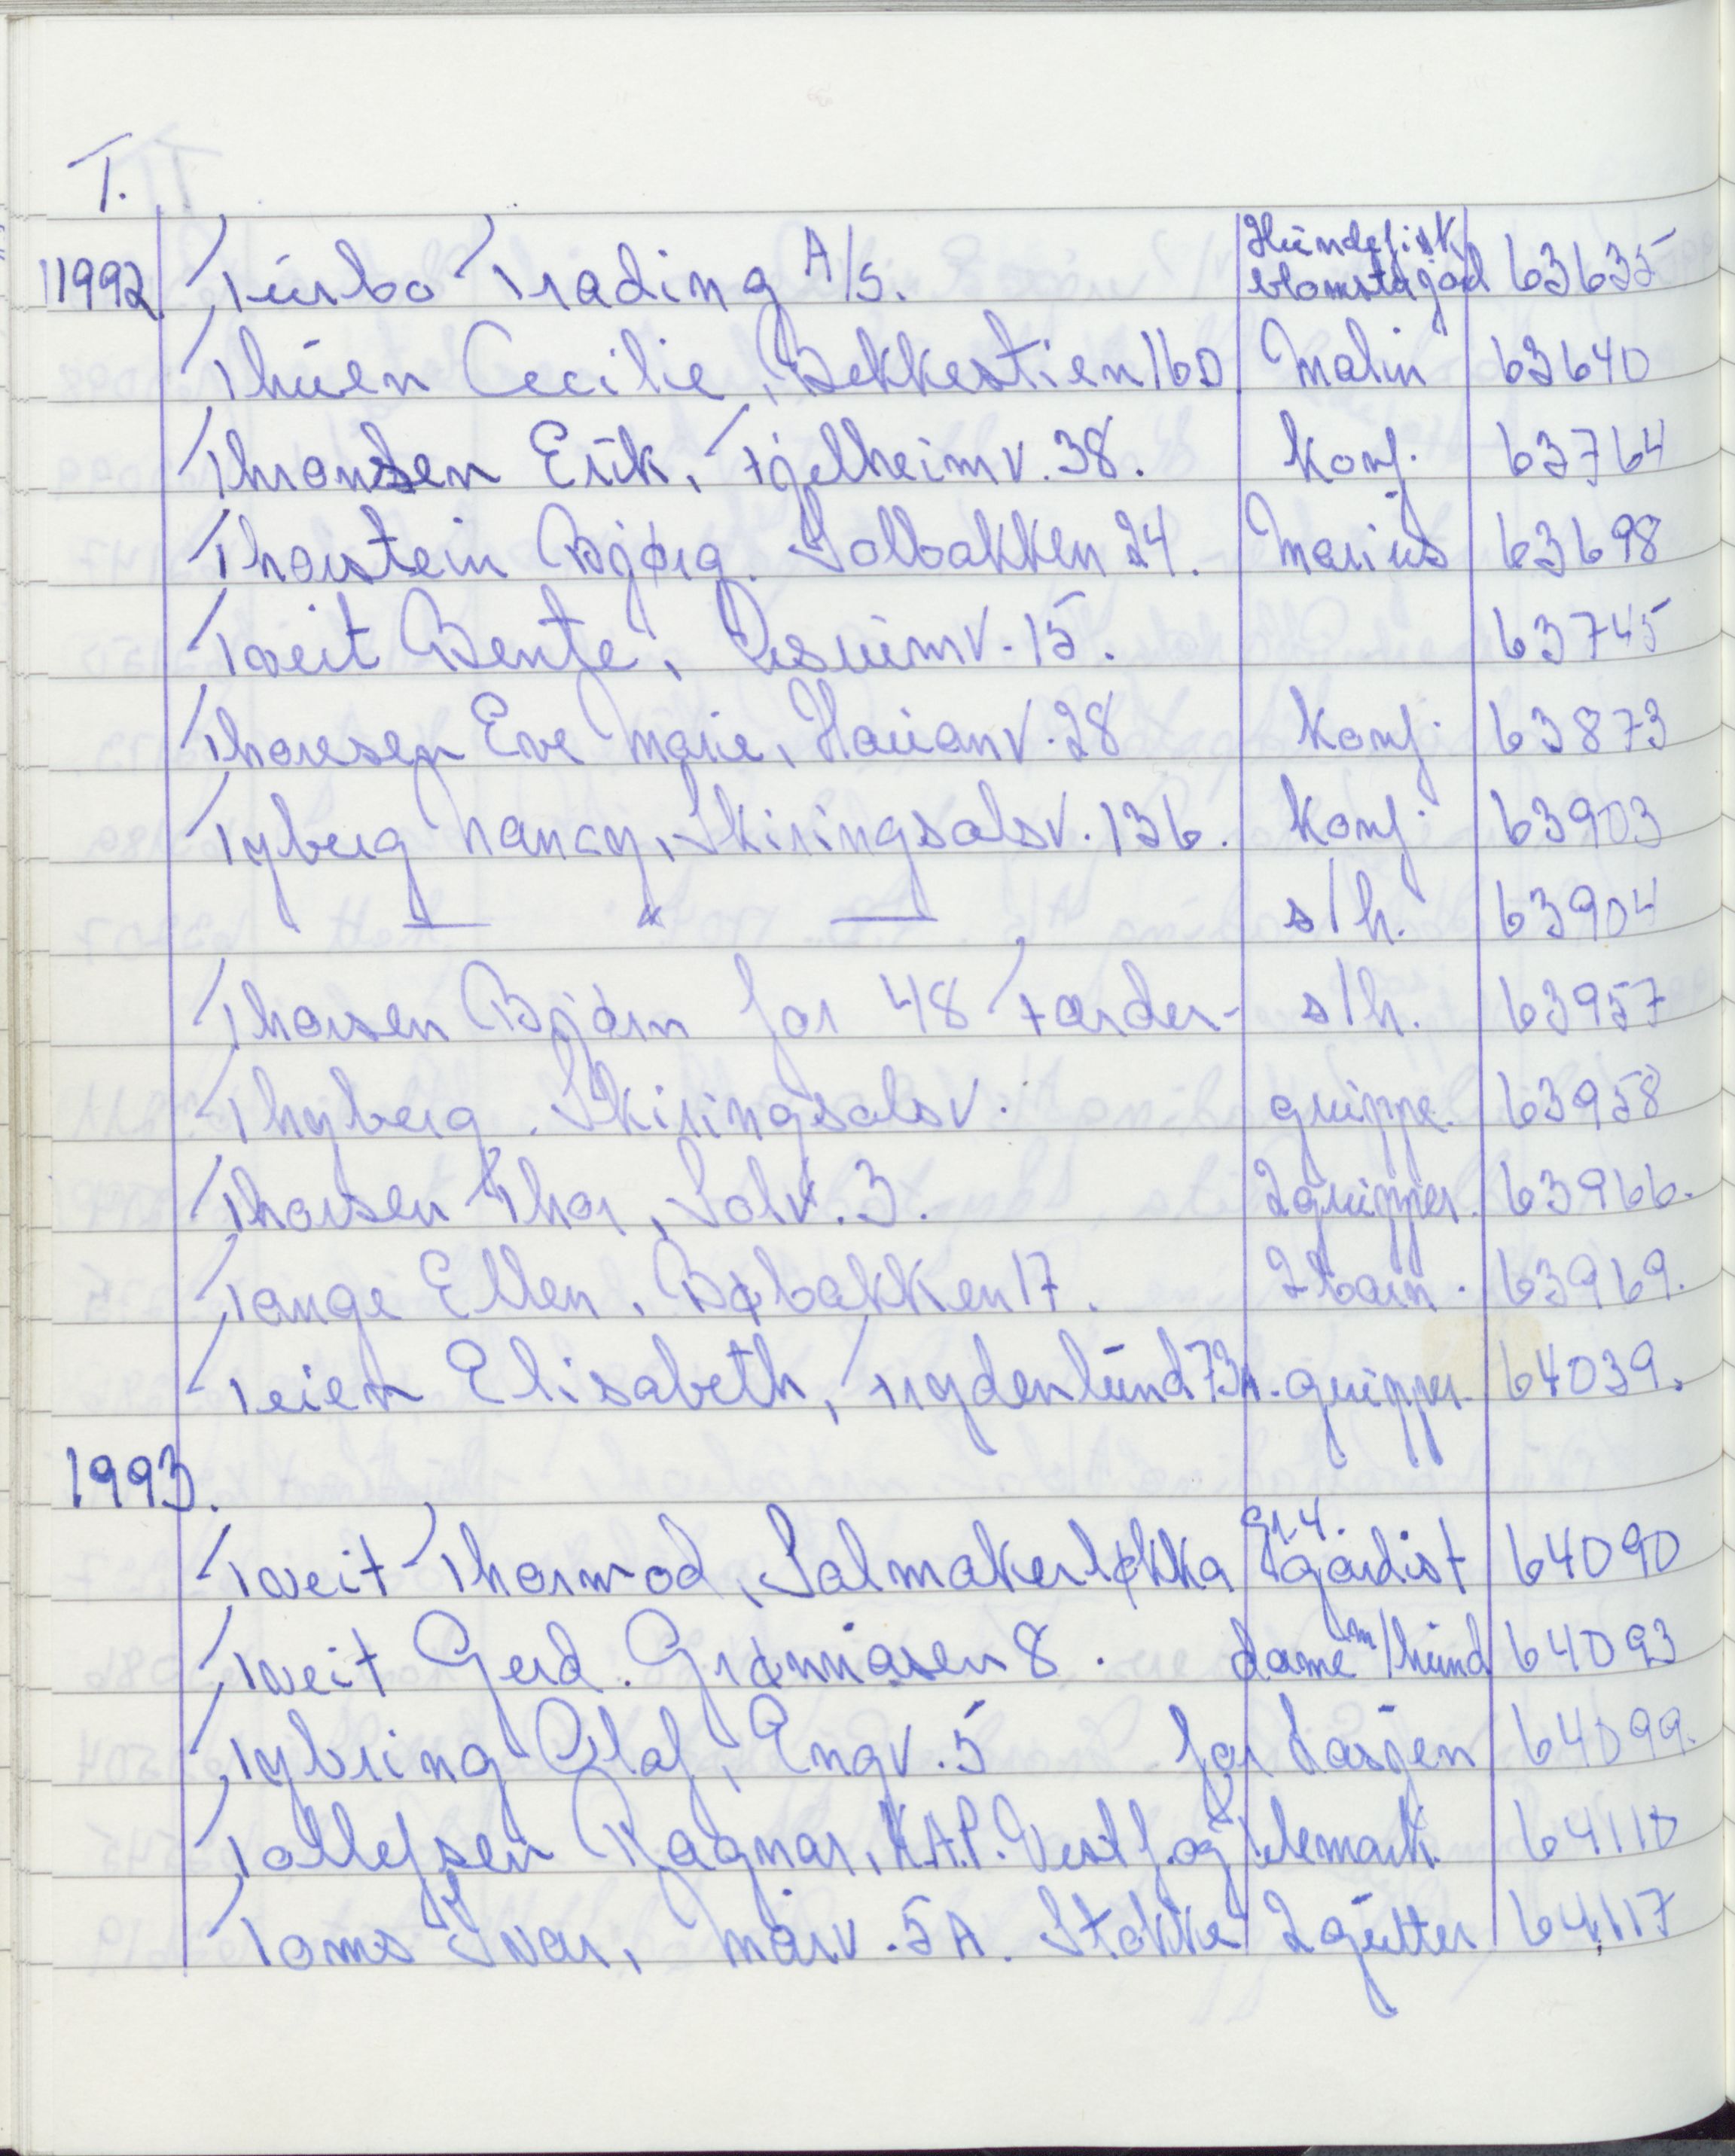 T.
1992 Turbo Trading A/S. Hundefisk blomstdgjød 63635
Thuen Cecilie, Bekkestien 16D Malin 63640
Thronsen Erik, Fjelheimv. 38. Konf. 63764
Thorstein Bjørg. Solbakken 24. Marius 63698
Tveit Bente, 15. 63745
Thoresen Eve Marie, Haugan v. 28 Konf. 63873
Tyberg Nancy, Skiringsalsv. 136. Konf. 63903
— " — s/h. 63904
Thorsen Bjørn for 48 Færder- s/h. 63957
Thyberg. Skiringsalsv. gruppe. 63958
Thorsen Thor, Solv. 3. 2 grupper. 63966.
Tange Ellen. Bøbakken 17. 2 barn. 63969.
Teien Elisabeth, Frydenlund 73A. grupper. 64039.
1993.
Tveit Thormod, Salmakerløkka Gr. 4. gardist 64090
Tveit Gerd. Grønniåsen 8. dame m/hund 64093
Tybring Olaf, Engv. 5 for Låsjen 64099.
Tollefsen Ragnar, K.A.P. Vestf. og Telemark. 64110
Toms Ivar, Mårv. 5A. Stokke 2 gutter 64117